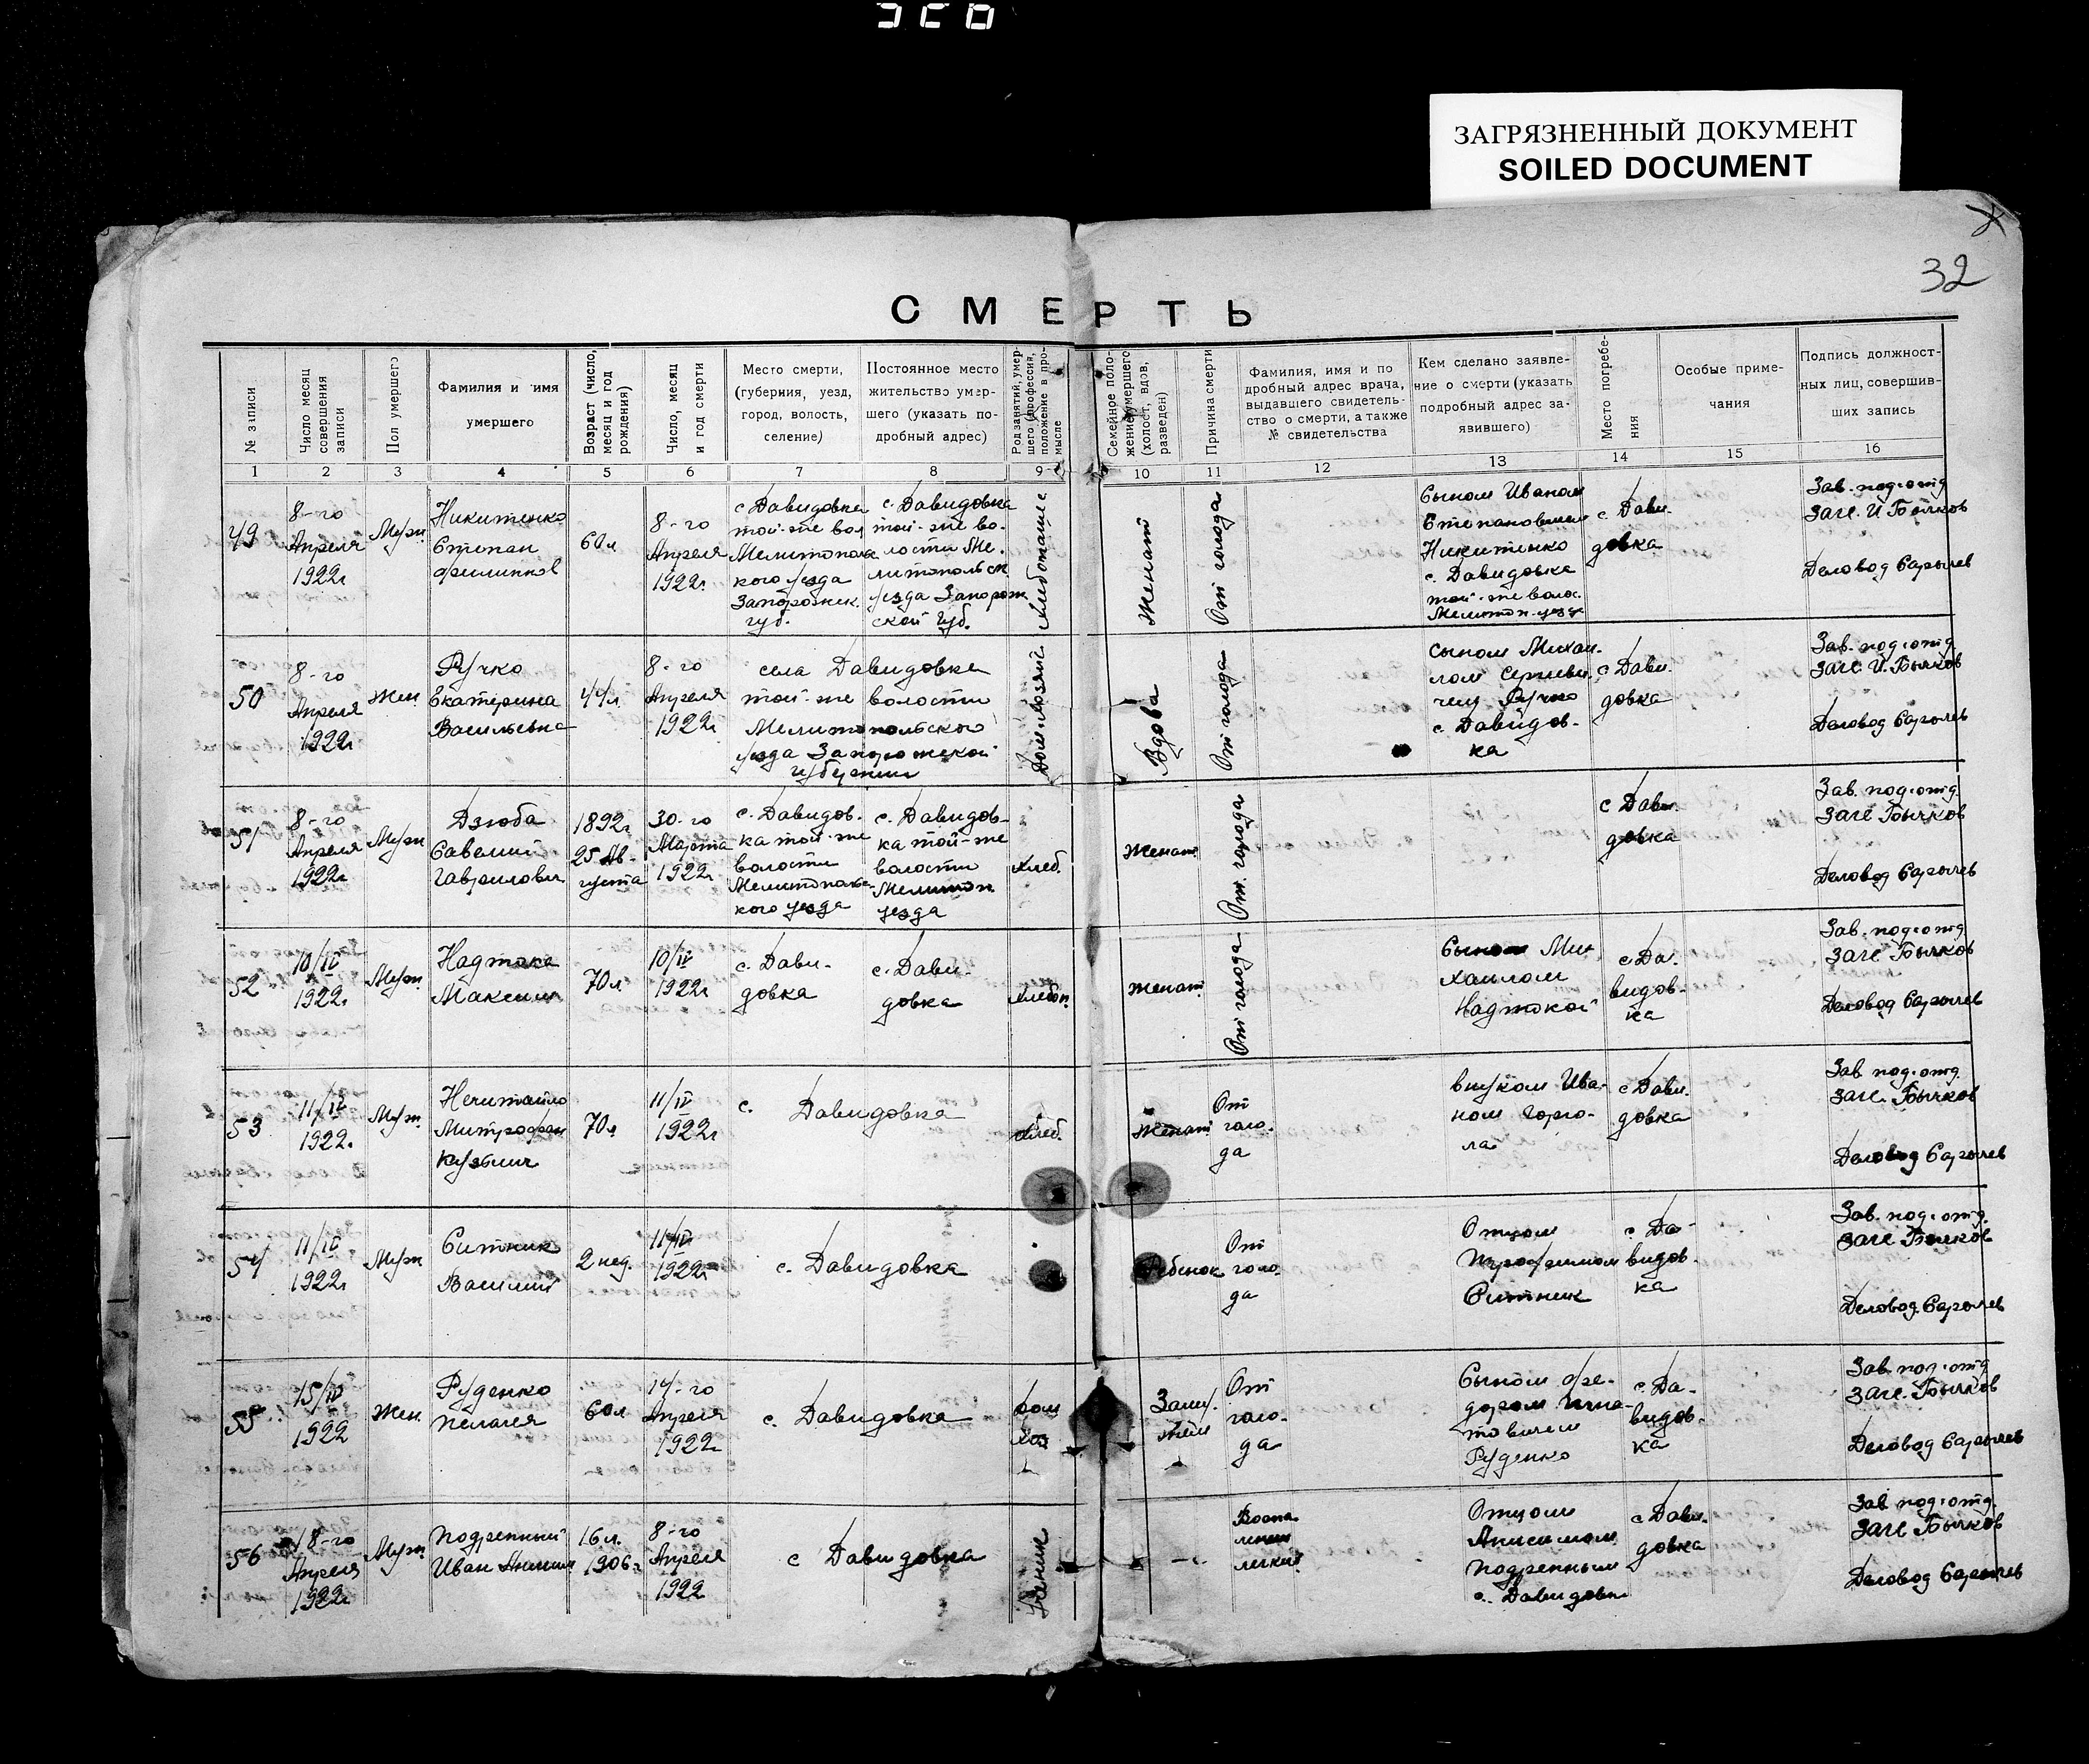 ЗАГРЯЗНЕННЫЙ ДОКУМЕНТ
SOILED DOCUMENT
32
СМЕРТЬ
№ записи
Число месяц
совершения
записи
Пол умершего
Фамилия и имя
умершего
Возраст (число,
месяц и год
рождения)
Число, месяц
и год смерти
Место смерти,
(губерния, уезд,
город, волость,
селение)
Постоянное место
жительство умер-
шего (указать по-
дробный адрес)
Род занятий, умер-
шего (профессия,
положение в про-
мысле
Семейное поло-
жение умершего
(холост, вдов,
разведен)
Причина смерти
Фамилия, имя и по
дробный адрес врача,
выдавшего свидетель-
ство о смерти, а также
№ свидетельства
Кем сделано заявле-
ние о смерти (указать
подробный адрес за-
явившего)
Место погребе-
ния
Особые приме-
чания
Подпись должност-
ных лиц, совершив-
ших запись
1 2 3 4 5 6 7 8 9 10 11 12 13 14 15 16
49
8-го
Апреля
1922г
Муж
Никитенко
Степан
Филиппов
60л
8-го
Апреля
1922г
с Давидовка
той-же вол
Мелитополь
кого уезда
Запорожск.
губ.
с Давидовка
той-же во-
лости Ме-
литопольск
уезда Запорож
ской губ.
Хлебопашес
Женат
От голода
Сыном Иваном
Степановичем
Никитенко
с. Давидовка
той-же волос.
Мелитоп. уезд
с. Дави-
довка
Зав. под.отд
Загс. И. Бычков
Деловод Сарычев
50
8-го
Апреля
1922г
Жен
Ручко
Екатерина
Васильевна
44л
8-го
Апреля
1922г
села Давидовка
той-же волости
Мелитопольского
уезда Запорожской
губернии
Дом-хозяй
Вдова
От голода
сыном Михаи-
лом Сергееви-
чем Ручко
с. Давидов-
ка
с Дави-
довка
Зав. под.отд
Загс И. Бычков
Деловод Сарычев
51
8-го
Апреля
1922г
Муж
Дзюба
Савелий
Гаврилович
1892г
25 Ав-
густа
30-го
Марта
1922г
с. Давидов-
ка той-же
волости
Мелитопольс-
кого уезда
с. Давидов-
ка той-же
волости
Мелитоп
уезда
Хлеб.
Женат
От голода
с Дави-
довка
Зав. под.отд
Загс Бычков
Деловод Сарычев
52
10/IV
1922г
Муж.
Надтока
Максим
70л
10/IV
1922г
с. Дави-
довка
с. Дави-
довка
Хлебоп.
Женат
От голода
Сыном Ми-
хаилом
Надтокой
с Да-
видов-
ка
Зав. под.отд
Загс Бычков
Деловод Сарычев
53
11/IV
1922г.
Муж
Нечитайло
Митрофан
Кузьмич
70л
11/IV
1922г
с. Давидовка
Хлеб.
Женат
От
голо-
да
внуком Ива-
ном Горго-
ла
с Дави-
довка
Зав под.отд
Загс. Бычков
Деловод Сарычев
54
11/IV
1922г
Муж
Ситник
Василий
2 нед.
11/IV
1922г
с. Давидовка
Ребенок
От
голо-
да
Отцом
Трофимом
Ситник
с. Да-
видов-
ка
Зав. под.отд.
Загс Бычков
Деловод. Сарычев
55
15/IV
1922
Жен.
Руденко
Пелагея
60л
14-го
Апреля
1922г
с. Давидовка
дом
хоз
Заму-
жем
От
голо-
да
Сыном Фе-
дором Игна-
товичем
Руденко
с. Да-
видов-
ка
Зав. под.отд
Загс. Бычков
Деловод Сарычев
56
18-го
Апреля
1922г
Муж
Подрепный
Иван Анисим
16л.
1906г
8-го
Апреля
1922
с Давидовка
Ученик
Воспа-
ление
легких
Отцом
Анисимом
Подрепным
с. Давидовк
с Дави-
довка
Зав под.отд.
Загс Бычков
Деловод Сарычев